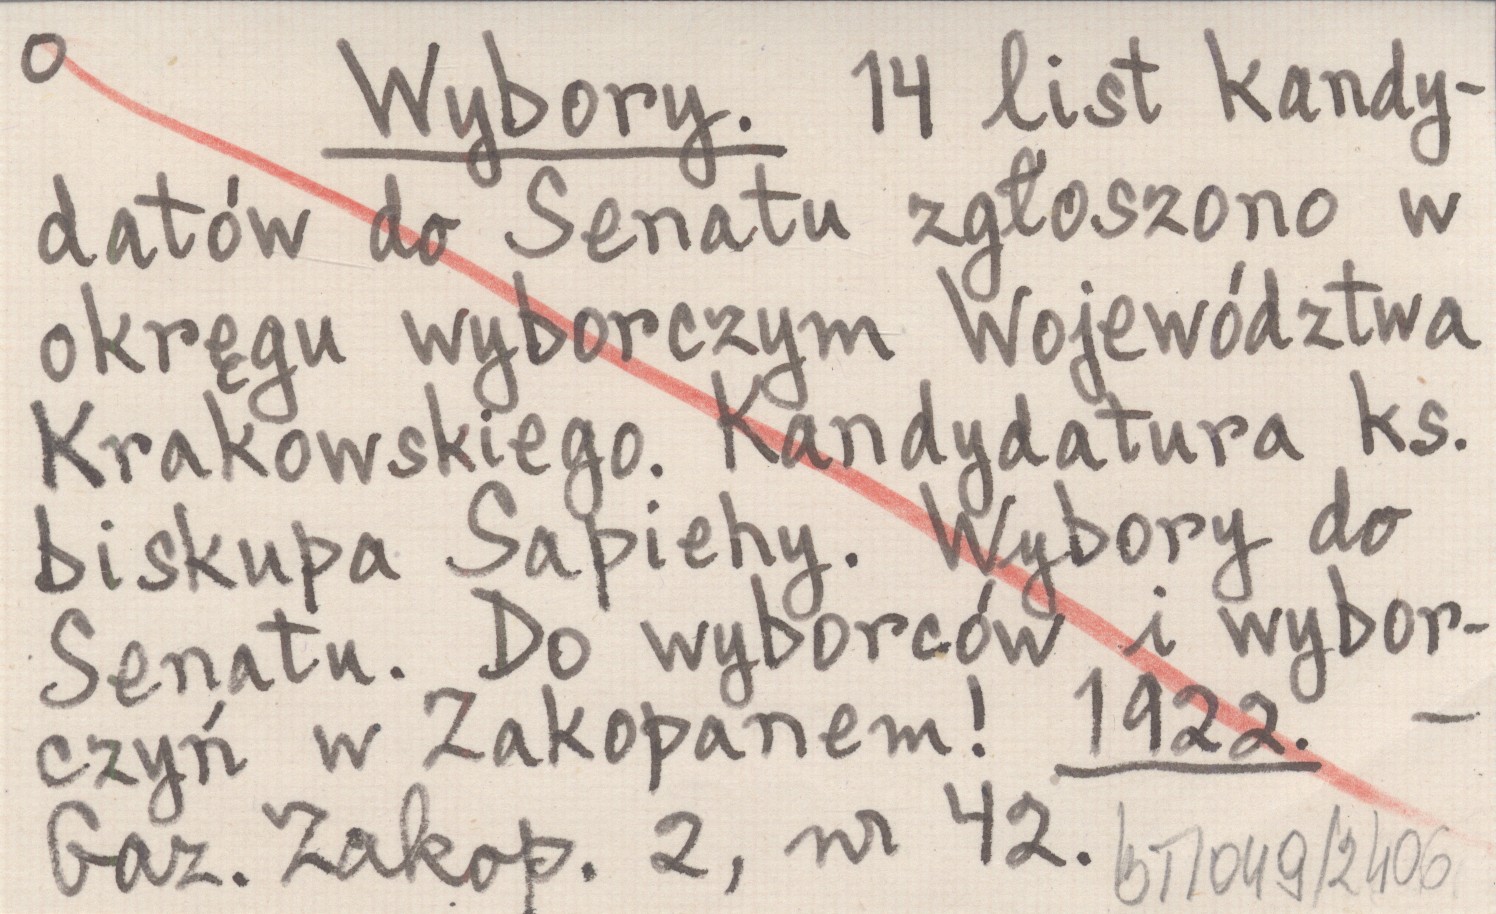 o Wybory. 14 list kandy-
datów do Senatu zgłoszono w
okręgu wyborczym Województwa
Krakowskiego. Kandydatura ks.
biskupa Sapiehy. Wybory do
Senatu. Do wyborców i wybor-
czyń w Zakopanem! 1922. —
Gaz. Zakop. 2, nr 42. bT/049/2406